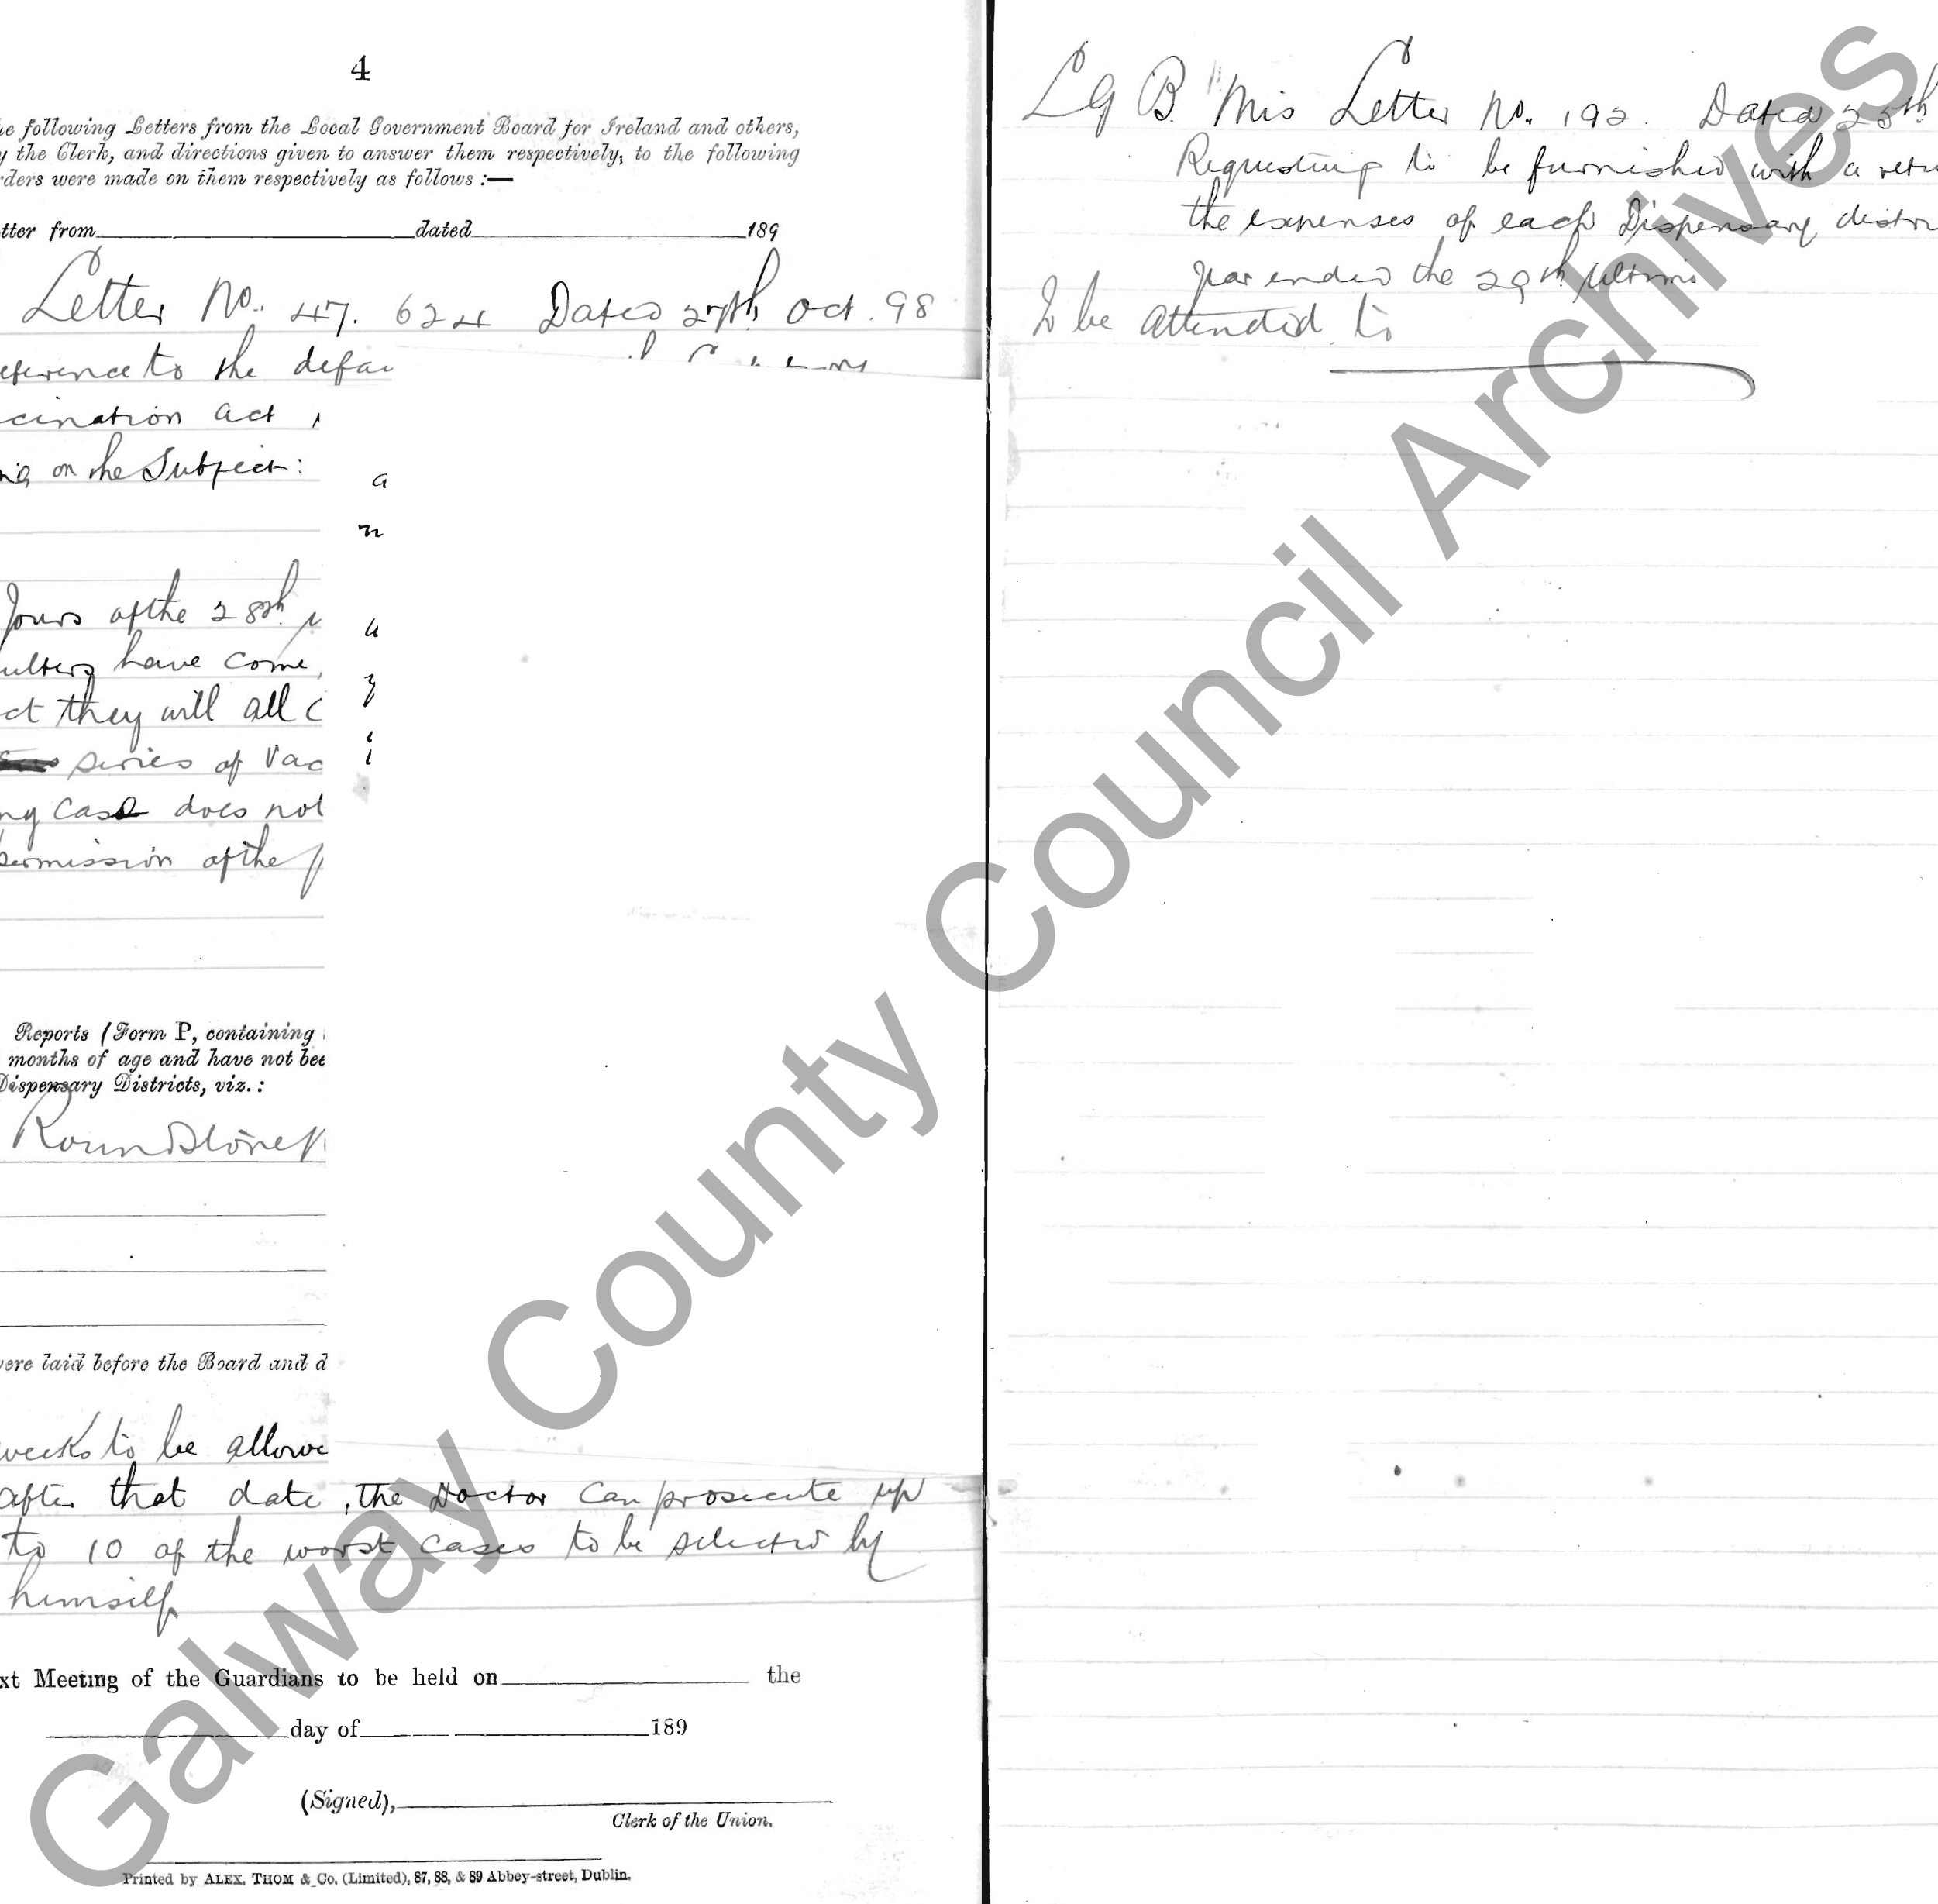 4
he following Letters from the Local Government Board for Ireland and others,
y the Clerk, and directions given to answer them respectively, to the following
rders were made on them respectively as follows :—
tter from dated 189
Letter No. 47. 624 Dated 27th Oct. 98
eference to the defau
cination Act
ng on the Subject:
a
n
Yours of the 28th
u
ulters have come
ct they will all c
z
series of Vac
i
ng Case does not
permission of the p
Reports (Form P, containing
months of age and have not bee
Dispensary Districts, viz. :
Roundstone
vere laid before the Board and d
weeks to be allowe
after that date, the Doctor Can prosecute up
to 10 of the worst cases to be selected by
himself
xt Meeting of the Guardians to be held on the
day of 189
(Signed),
Clerk of the Union.
Printed by ALEX. THOM & Co. (Limited), 87, 88, & 89 Abbey-street, Dublin.
L G B. Mis Letter No. 192. Dated 25th
Requesting to be furnished with a retu
the expenses of each Dispensary distr
year ended the 29th ultimo
To be attended to
Galway County Council Archives